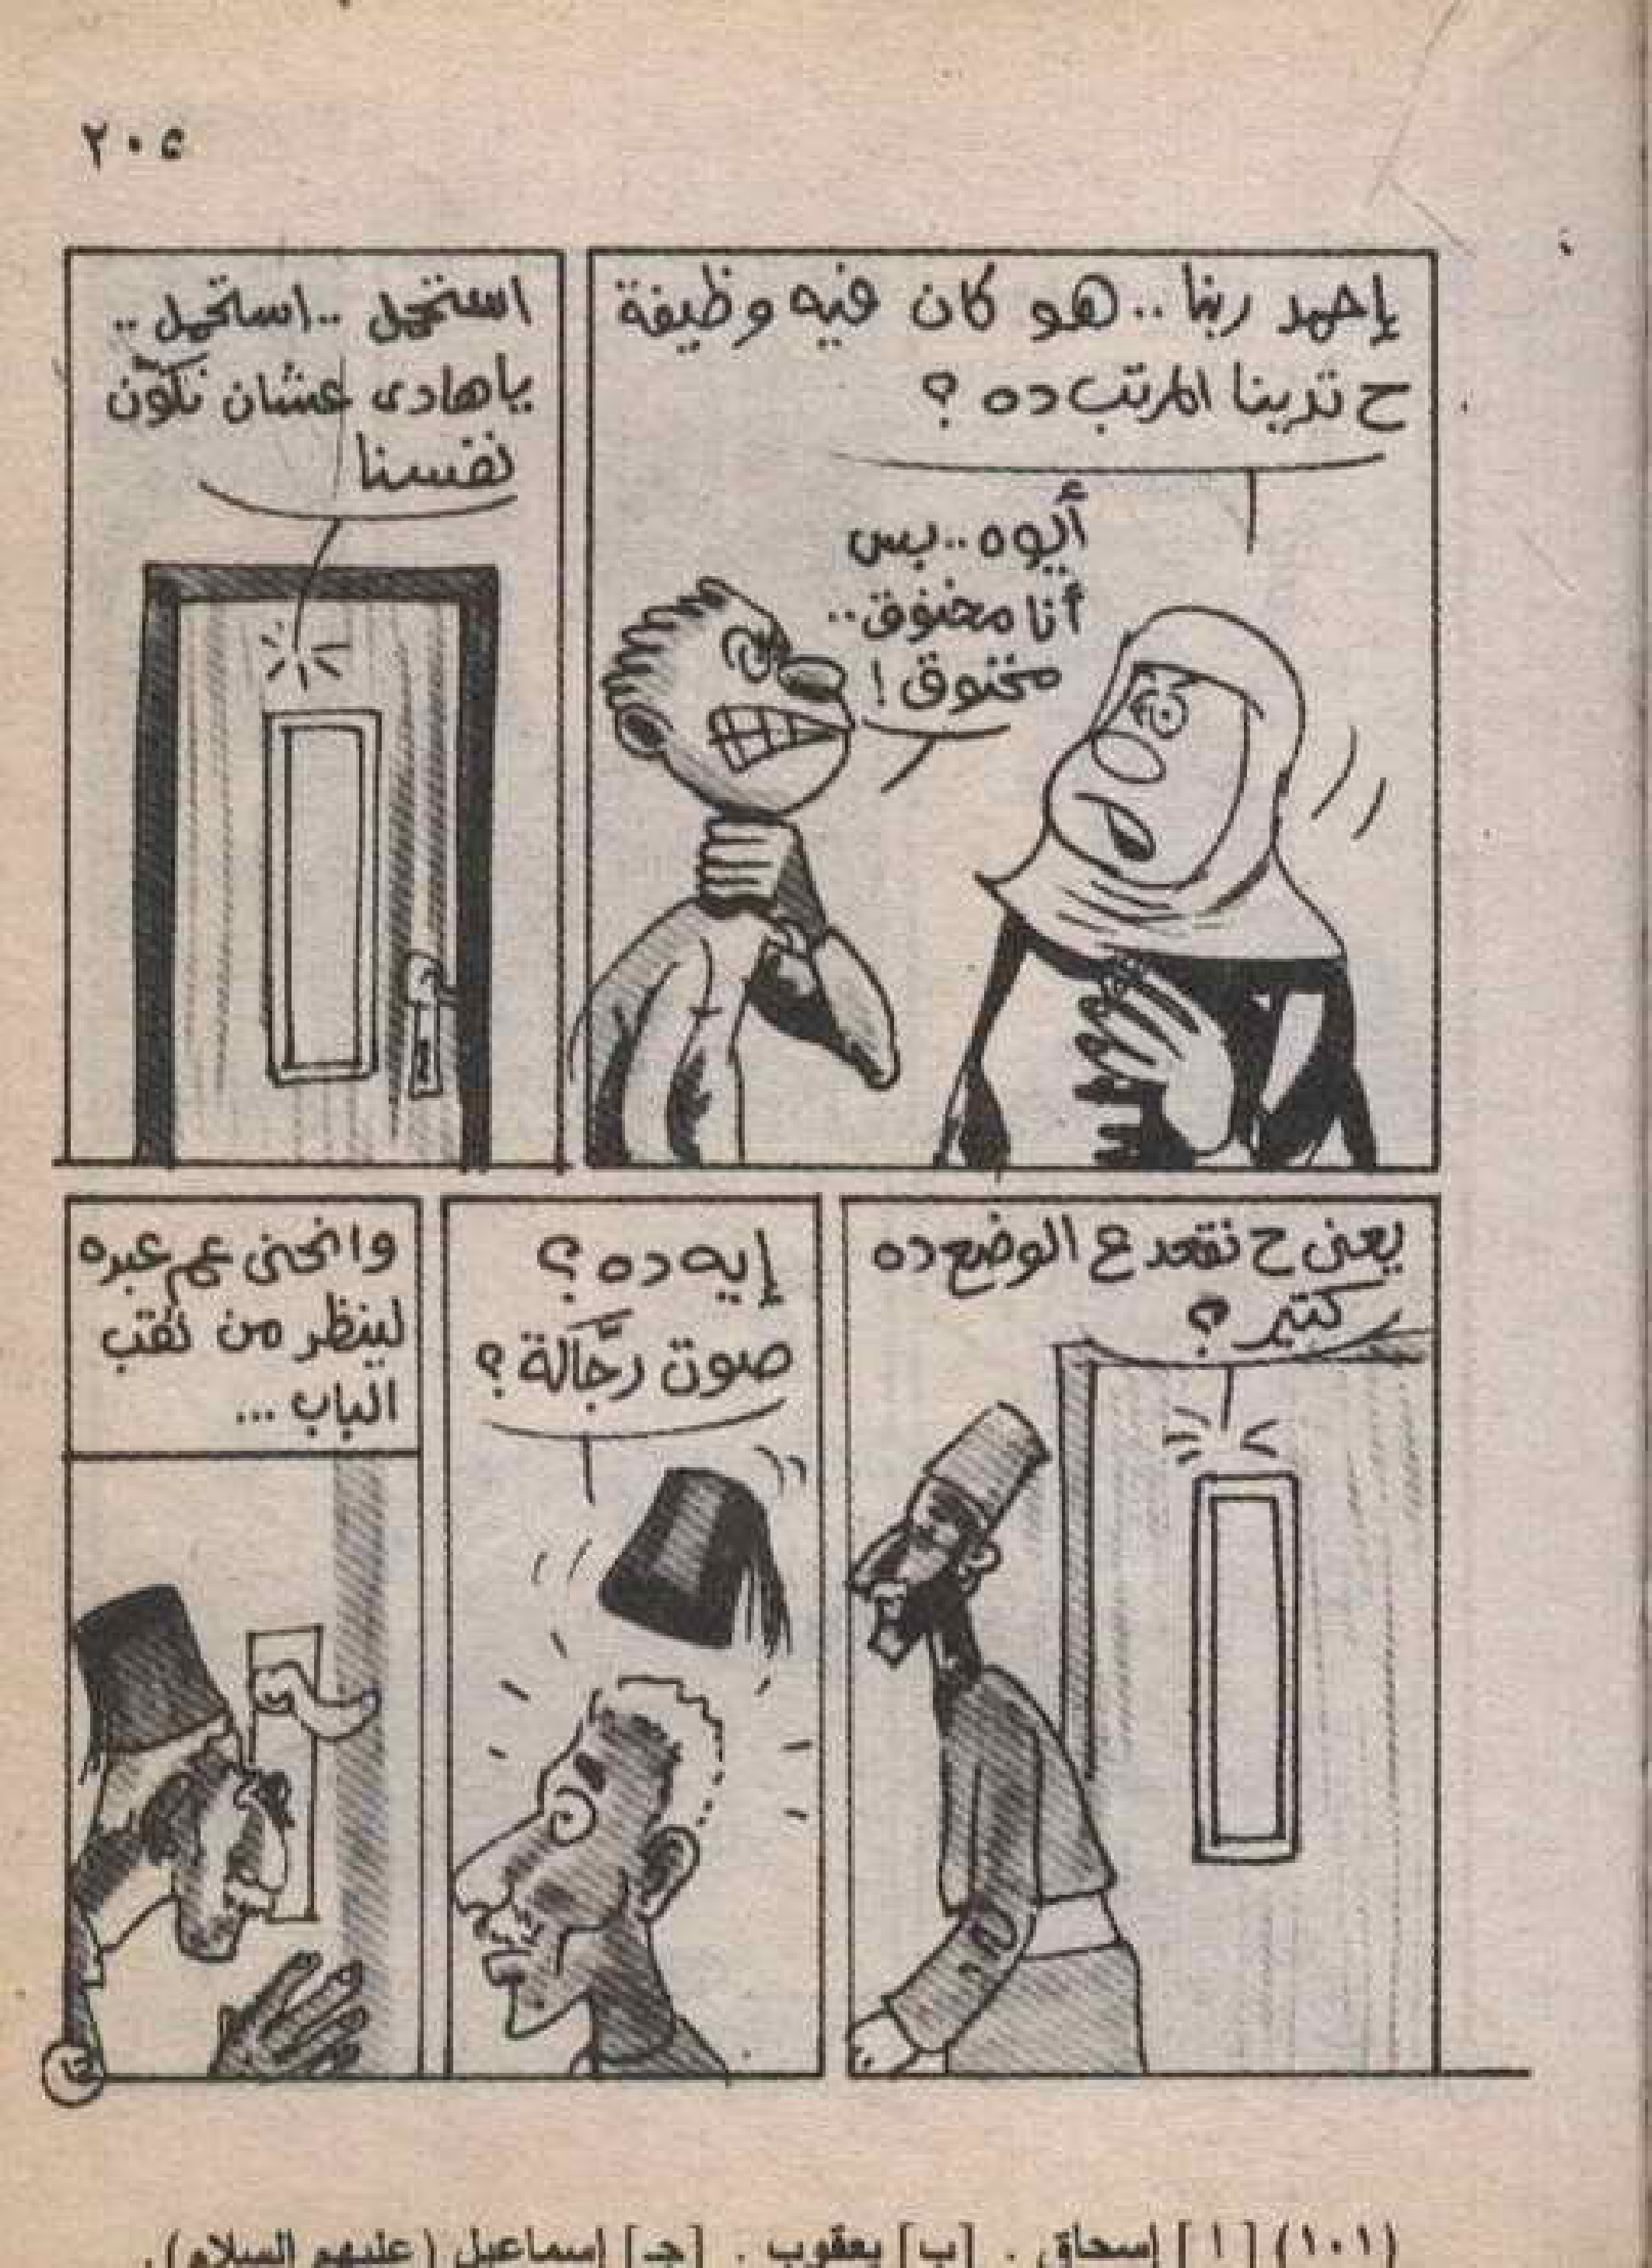 ٢٠٥
إحمد ربنا .. هو كان فيه وظيفة
ح تدينا المرتب ده ؟
أيوه .. بس
أنا مخنوق ..
مخنوق !
استحمل .. استحمل ..
ياهادى عشان نكوّن
نفسنا
يعنى ح نقعد ع الوضع ده
كتير ؟
إيه ده ؟
صوت رجَّالة ؟
وانحنى عم عبده
لينظر من ثقب
الباب ...
(١٠١) [ ا ] إسحاق . [ب] يعقوب . [جـ] إسماعيل (عليهم السلام) .